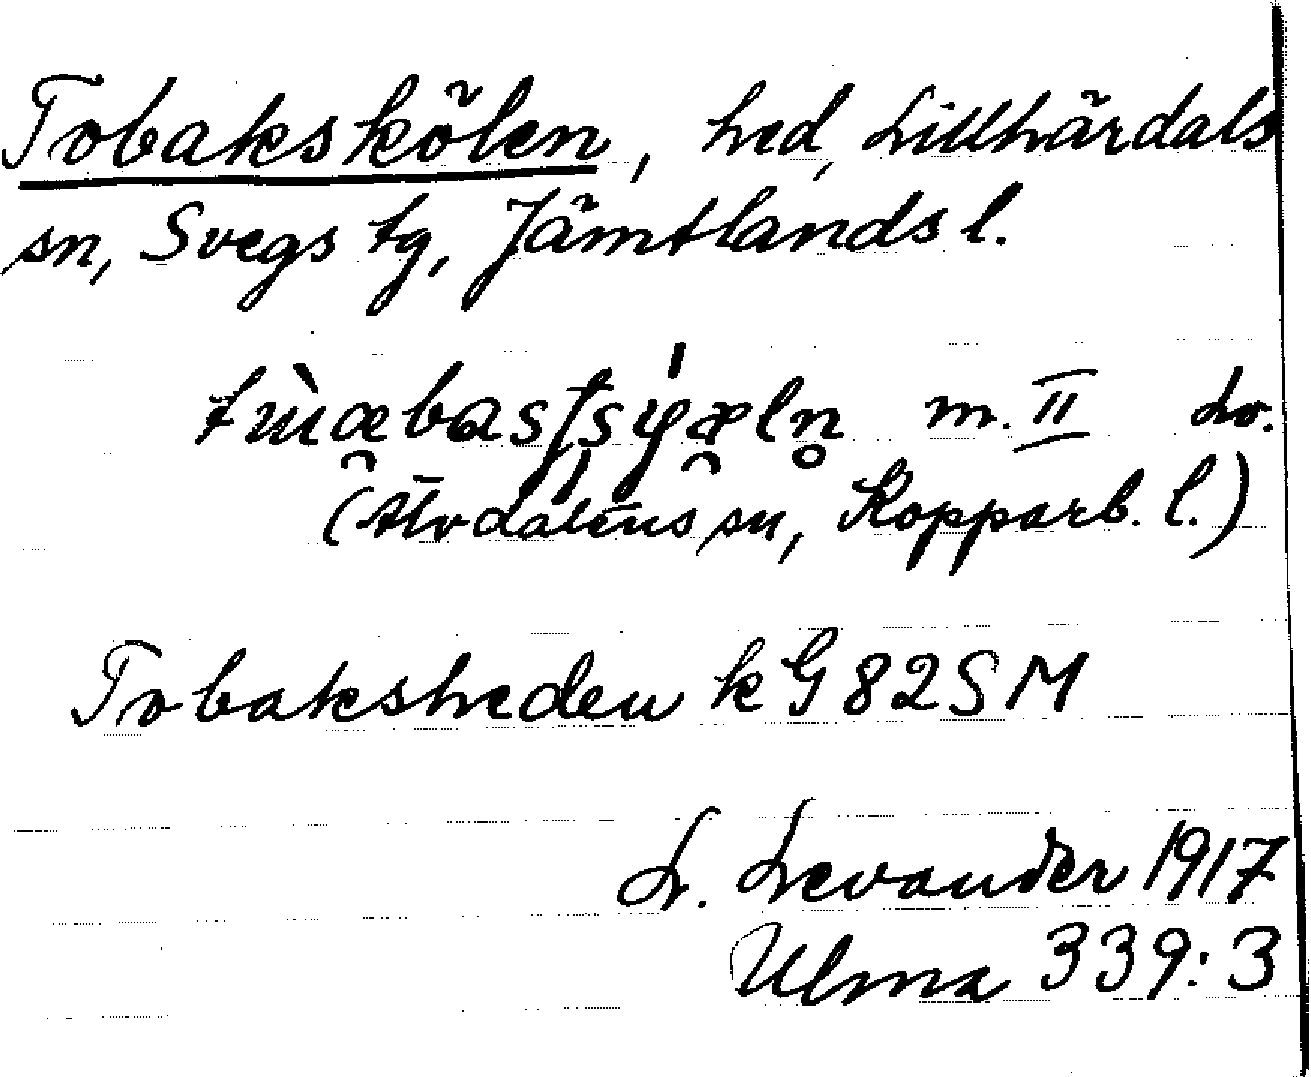 Tobakskölen, hed, Lillhärdals
sn, Svegs tg, Jämtlands l.
m. II Lv.
(Älvdalens sn, Kopparb. l.)
Tobaksheden kG82SM
L. Levander 1917
Ulma 339:3